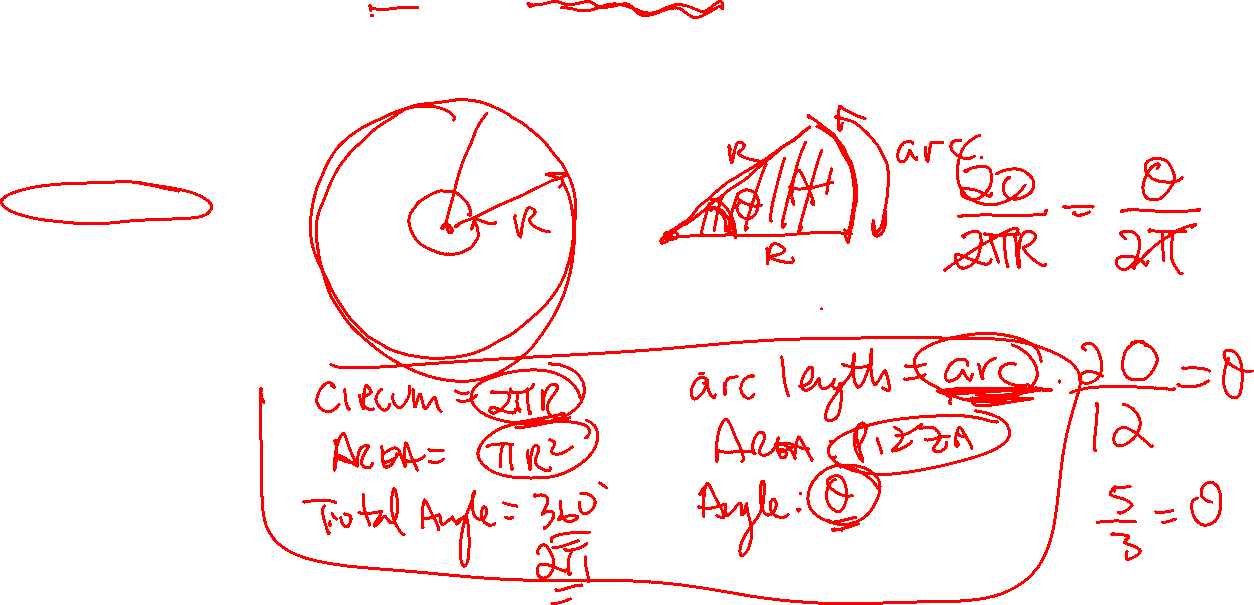 R
R
θ
A
R
arc.
20/2πR = θ/2π
Circum = 2πR
AREA = πR²
Total Angle = 360°
2π
arc length = arc.
AREA PIZZA
Angle: θ
20/12 = θ
5/3 = θ